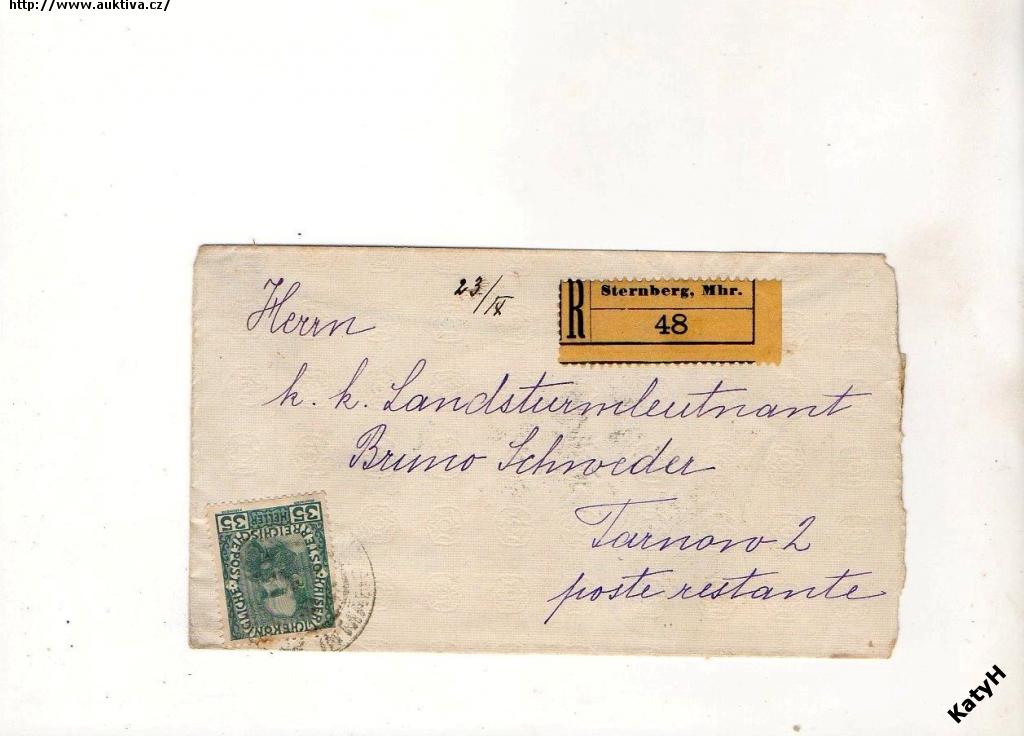 http://www.auktiva.cz/
Herrn
23/IX
R
Sternberg, Mhr.
48
k. k. Landsturmleutnant
Bruno Schweder
Tarnow 2
poste restante
35
HELLER
35
KatyH